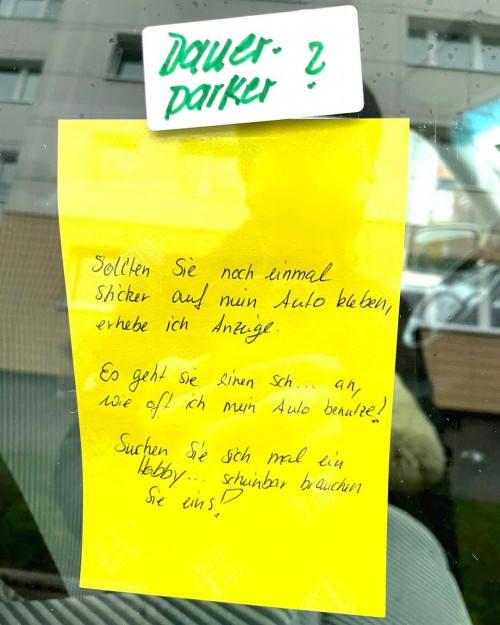 Dauer-
parker ?
Sollten Sie noch einmal
Sticker auf mein Auto kleben,
erhebe ich Anzeige.
Es geht sie einen sch... an,
wie oft ich mein Auto benutze!
Suchen Sie sich mal ein
Hobby... scheinbar brauchen
Sie eins!